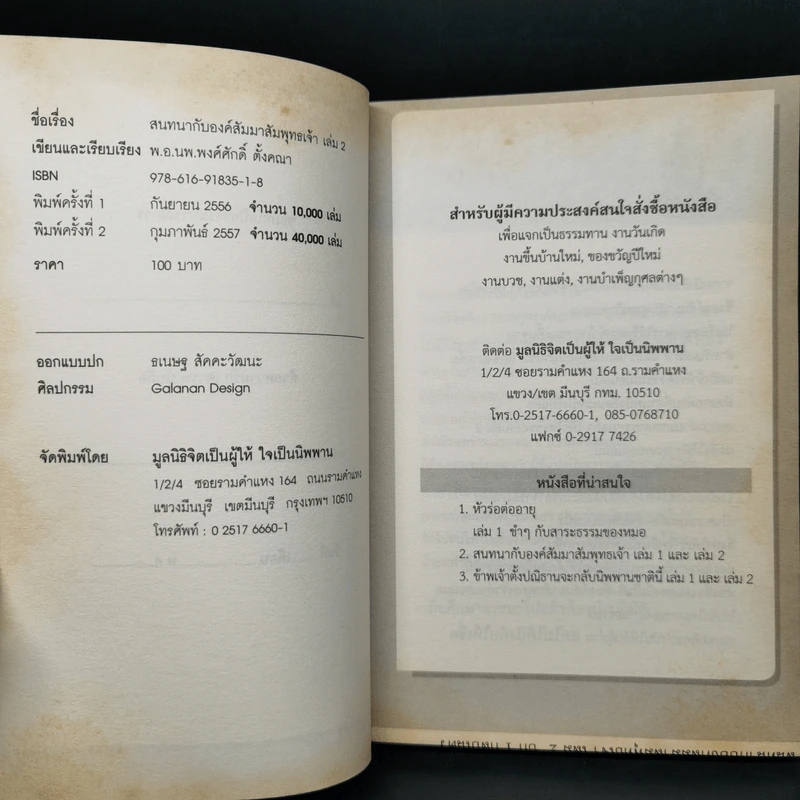 ชื่อเรื่อง สนทนากับองค์สัมมาสัมพุทธเจ้า เล่ม 2
เขียนและเรียบเรียง พ.อ.นพ.พงศ์ศักดิ์ ตั้งคณา
ISBN 978-616-91835-1-8
พิมพ์ครั้งที่ 1 กันยายน 2556 จำนวน 10,000 เล่ม
พิมพ์ครั้งที่ 2 กุมภาพันธ์ 2557 จำนวน 40,000 เล่ม
ราคา 100 บาท
ออกแบบปก ธเนษฐ สัคคะวัฒนะ
ศิลปกรรม Galanan Design
จัดพิมพ์โดย มูลนิธิจิตเป็นผู้ให้ ใจเป็นนิพพาน
1/2/4 ซอยรามคำแหง 164 ถนนรามคำแหง
แขวงมีนบุรี เขตมีนบุรี กรุงเทพฯ 10510
โทรศัพท์ : 0 2517 6660-1
สำหรับผู้มีความประสงค์สนใจสั่งซื้อหนังสือ
เพื่อแจกเป็นธรรมทาน งานวันเกิด
งานขึ้นบ้านใหม่, ของขวัญปีใหม่
งานบวช, งานแต่ง, งานบำเพ็ญกุศลต่างๆ
ติดต่อ มูลนิธิจิตเป็นผู้ให้ ใจเป็นนิพพาน
1/2/4 ซอยรามคำแหง 164 ถ.รามคำแหง
แขวง/เขต มีนบุรี กทม. 10510
โทร.0-2517-6660-1, 085-0768710
แฟกซ์ 0-2917 7426
หนังสือที่น่าสนใจ
1. หัวร่อต่ออายุ
เล่ม 1 ขำๆ กับสาระธรรมของหมอ
2. สนทนากับองค์สัมมาสัมพุทธเจ้า เล่ม 1 และ เล่ม 2
3. ข้าพเจ้าตั้งปณิธานจะกลับนิพพานชาตินี้ เล่ม 1 และ เล่ม 2